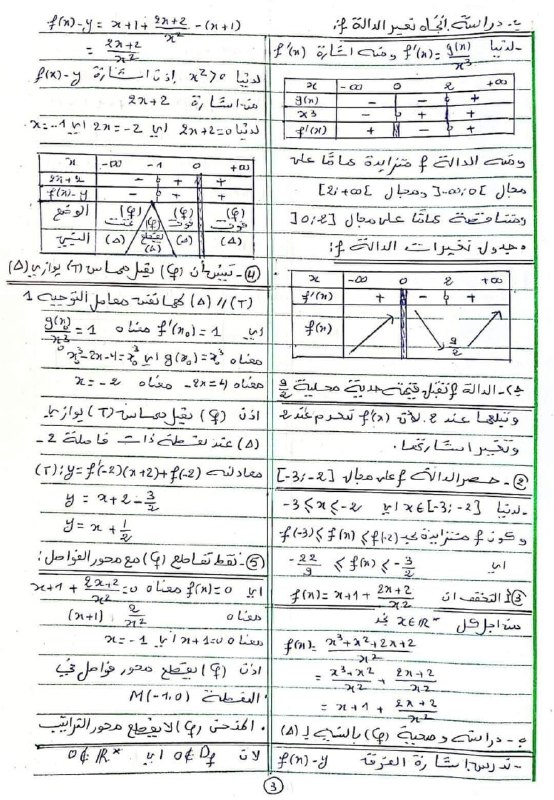 ب- دراسة اتجاه تغير الدالة f:
- لدينا f'(x) = g(x)/x³ ومنه اشارة f'(x)
x | -∞ 0 2 +∞
g(x) | - - 0 +
x³ | - 0 + +
f'(x) | + - 0 +
ومنه الدالة f متزايدة تماما على
مجال ]-∞;0[ ومجال [2;+∞[
ومتناقصة تماما على مجال ]0;2]
وجدول تغيرات الدالة f:
x | -∞ 0 2 +∞
f'(x) | + - 0 +
f(x) | 9/2
- الدالة f تقبل قيمة حدية محلية 9/2
وتبلغها عند 2. لأن f'(x) تنعدم عند 2
وتغير اشارتها.
② - حصر الدالة f على مجال [-3;-2]
- لدينا x∈[-3;-2] اي -3≤x≤-2
وكون f متزايدة نجد f(-3)≤f(x)≤f(-2)
اي -22/9 ≤ f(x) ≤ -3/2
③ أ/ التحقق ان f(x) = x+1+ (2x+2)/x²
من اجل كل x∈ℝ* نجد
f(x) = (x³+x²+2x+2)/x²
= (x³+x²)/x² + (2x+2)/x²
= x+1+ (2x+2)/x²
ب- دراسة وضعية (φ) بالنسبة لـ (Δ)
- ندرس اشارة الفرق f(x)-y
f(x)-y = x+1+ (2x+2)/x² -(x+1)
= (2x+2)/x²
لدينا x²>0 إذن اشارة f(x)-y
من اشارة 2x+2
لدينا 2x+2=0 اي 2x=-2 اي x=-1
x | -∞ -1 0 +∞
2x+2 | - 0 + +
f(x)-y | - 0 + +
الوضع | (φ) تحت (φ) يقطع (Δ) (φ) فوق (φ) فوق
النسبي | (Δ) (Δ) (Δ)
④ - تبيين أن (φ) يقبل مماس (T) يوازي (Δ)
(Δ) // (T) لهما نفس معامل التوجيه 1
اي f'(x₀) = 1 معناه g(x₀)/x₀³ = 1
معناه g(x₀)=x₀³ اي x₀³-2x-4=x₀³
معناه -2x=4 معناه x=-2
اذن (φ) يقبل مماس (T) يوازي
(Δ) عند نقطة ذات فاصلة -2
معادلته (T): y=f'(-2)(x+2)+f(-2)
y = x+2-3/2
y = x+1/2
⑤ - نقط تقاطع (φ) مع محور الفواصل:
اي f(x)=0 معناه x+1+ (2x+2)/x² =0
معناه (x+1) 2/x²
معناه x+1=0 اي x=-1
اذن (φ) يقطع محور فواصل في
النقطة M(-1,0)
- المنحنى (φ) لا يقطع محور التراتيب
لأن 0∉Df اي 0∉ℝ*
3